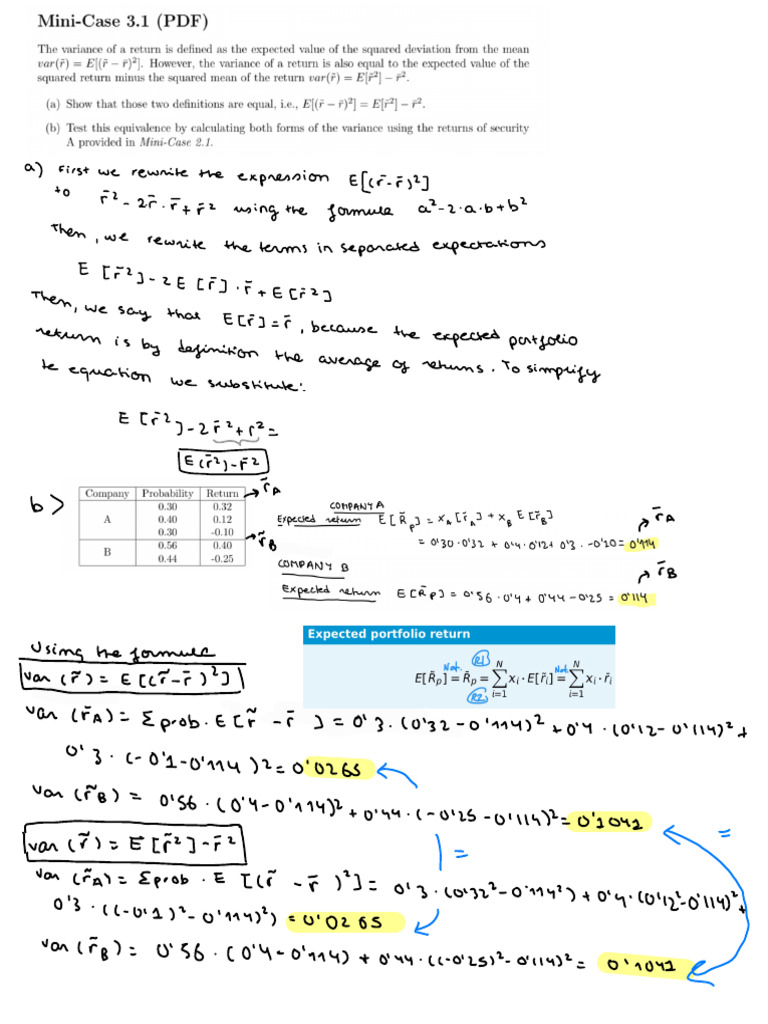 Mini-Case 3.1 (PDF)
The variance of a return is defined as the expected value of the squared deviation from the mean
var(r̃) = E[(r̃ − r̄)²]. However, the variance of a return is also equal to the expected value of the
squared return minus the squared mean of the return var(r̃) = E[r̃²] − r̄².
(a) Show that those two definitions are equal, i.e., E[(r̃ − r̄)²] = E[r̃²] − r̄².
(b) Test this equivalence by calculating both forms of the variance using the returns of security
A provided in Mini-Case 2.1.
a) First we rewrite the expression E[(r̃-r̄)²]
to r̃² - 2r̃·r̄ + r̄² using the formula a²-2·a·b+b²
Then, we rewrite the terms in separated expectations
E [r̃²] - 2E [r̃]·r̄ + E[r̄²]
Then, we say that E[r̃]=r̄, because the expected portfolio
return is by definition the average of returns. To simplify
te equation we substitute:
E [r̃²] - 2r̄² + r² =
E(r̃²)-r̄²
b)
Company Probability Return → r̃A
A 0.30 0.32
0.40 0.12
0.30 -0.10 → r̃B
B 0.56 0.40
0.44 -0.25
COMPANY A
Expected return E[R̃p] = xA [r̃A] + xB E[r̃B] → r̄A
= 0'30·0'32 + 0'4·0'12 + 0'3·-0'10 = 0'114
COMPANY B → r̄B
Expected return E[R̃p] = 0'56·0'4 + 0'44-0'25 = 0'114
Using the formula
Expected portfolio return
E[R̃p] Not. = R̄p (R1) = (R2) Σ N i=1 xi · E[r̃i] Not. = Σ N i=1 xi · r̄i
var (r̃) = E[(r̃-r̄)²]
var (r̃A) = Σprob·E[r̃ - r̄ ] = 0'3·(0'32-0'114)² + 0'4·(0'12-0'114)² +
0'3·(-0'1-0'114)² = 0'0265
var (r̃B) = 0'56·(0'4-0'114)² + 0'44·(-0'25-0'114)² = 0'1041
=
var (r̃) = E[r̃²]-r̄²
=
var (r̃A) = Σprob·E[(r̃ - r̄)²] = 0'3·(0'32²-0'114²) + 0'4·(0'12²-0'114)² +
0'3·((-0'1)²-0'114)²) = 0'0265
var (r̃B) = 0'56·(0'4-0'114) + 0'44·((-0'25)²-0'114)² = 0'1041